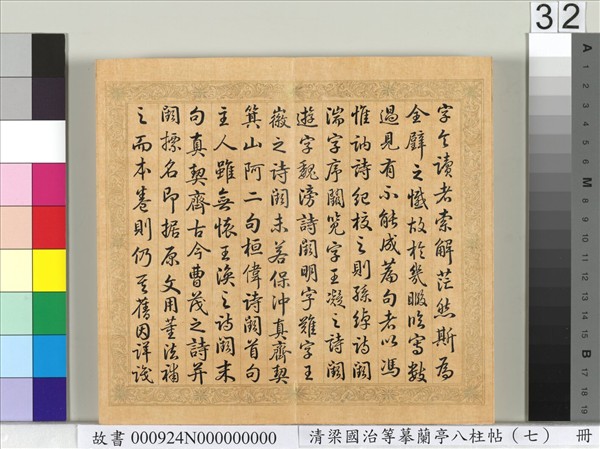 字令讀者索解茫然斯為
全璧之憾故於幾暇臨寫數
過見有不能成篇句者以馮
惟訥詩紀校之則孫綽詩闕
湍字序闕覽字王凝之詩闕
遊字魏滂詩闕明字難字王
徽之詩闕未若保沖真齊契
箕山阿二句桓偉詩闕首句
主人雖無懷王渙之詩闕末
句真契齊古今曹茂之詩并
闕標名即据原文用董法補
之而本卷則仍其舊因詳識
32
A
1
2
3
4
5
6
M
8
9
10
11
12
13
14
15
B
17
18
19
故書 000924N000000000
清梁國治等摹蘭亭八柱帖（七） 冊